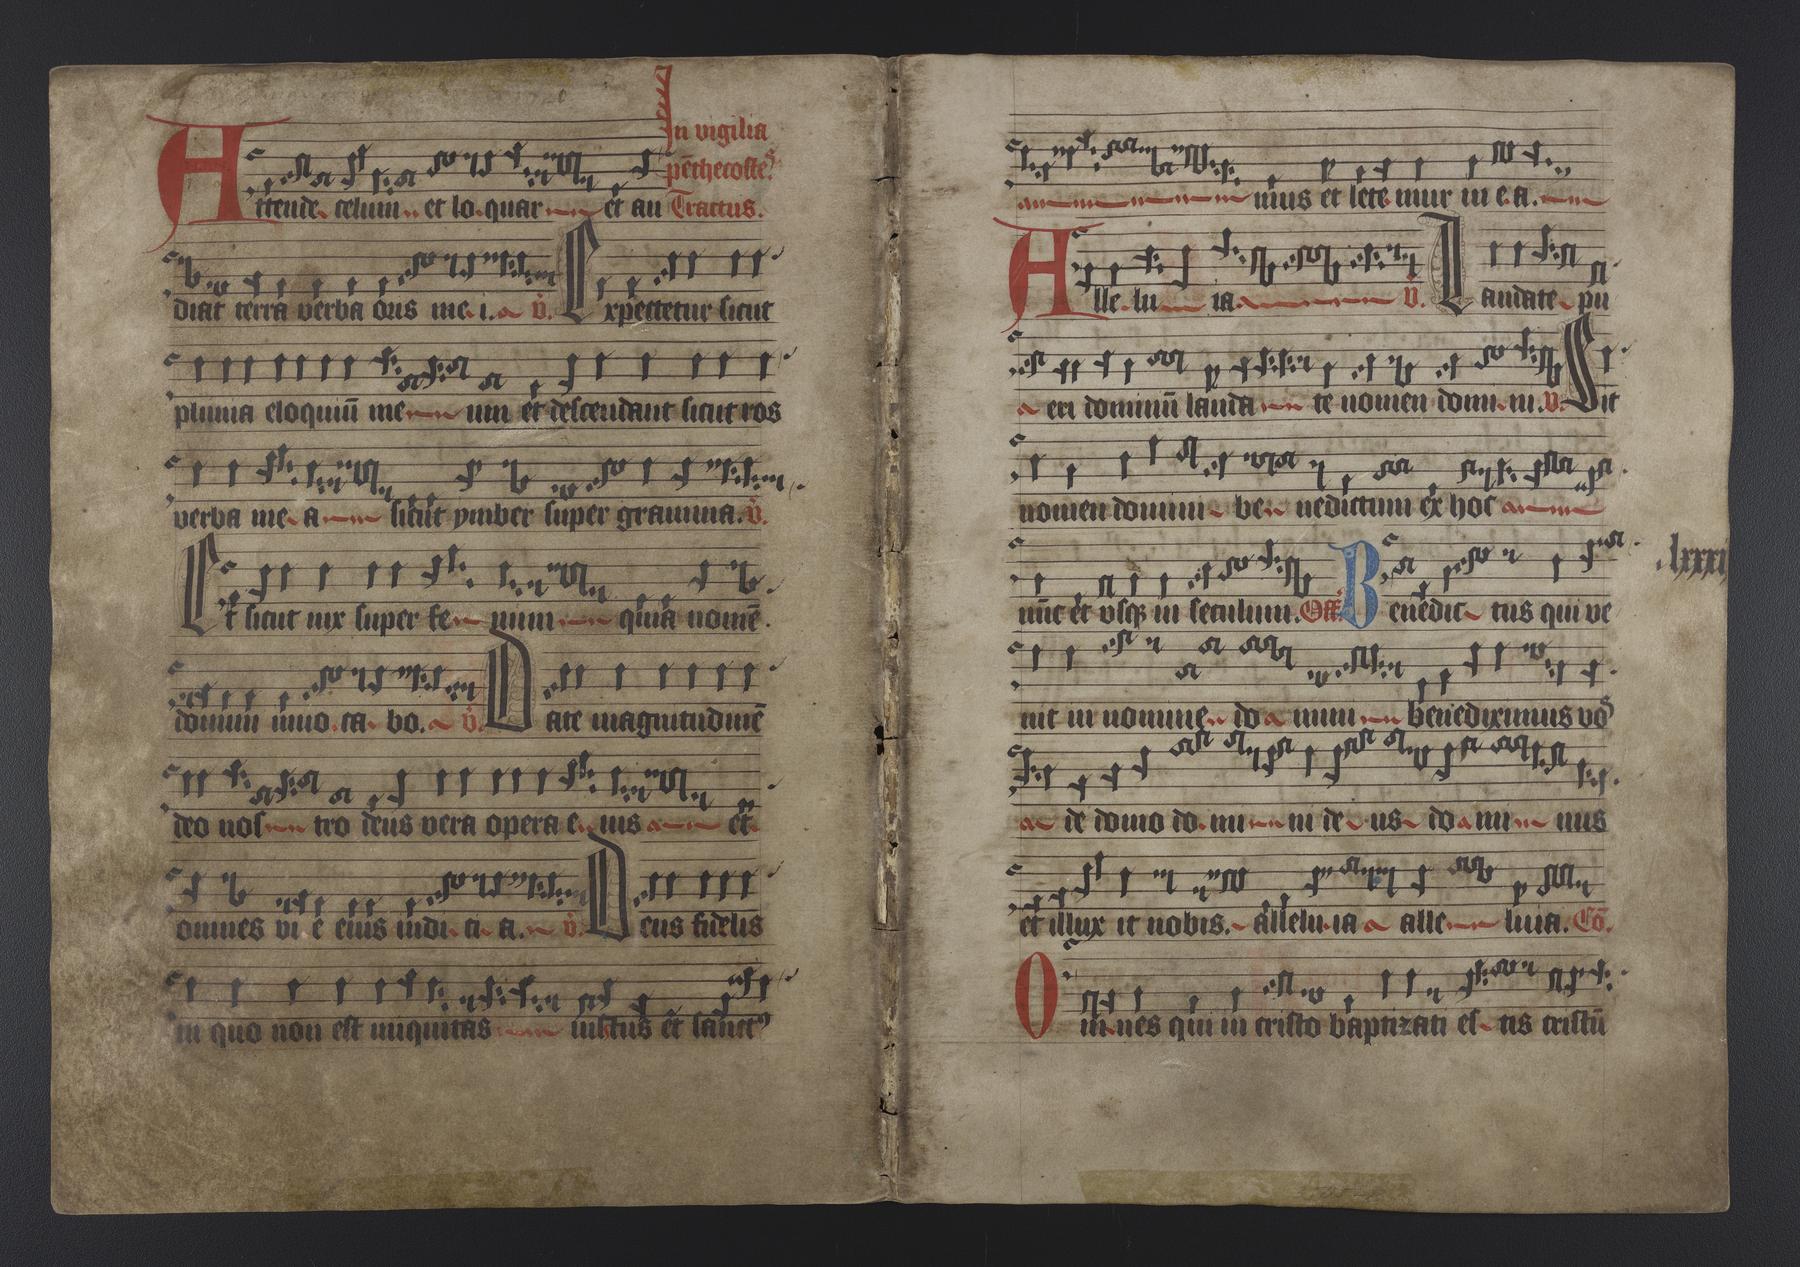 In vigilia
pēthecostes
Attende celum et lo quar et au Tractus.
diat terra verba oris me i. a v̄. Expectetur sicut
pluuia eloquiū me um et descendant sicut ros
verba me a sicut ymber super gramina. v̄.
Et sicut nix super fe num quia nomē
domini inuo ca bo. a v̄. Date magnitudinē
deo nos tro deus vera opera e ius et
omnes vi e eius iudi ci a. v̄. Deus fidelis
in quo non est iniquitas iustus et sanctꝰ
nius et lete mur in e a.
Alle lu ia v̄. Laudate pu
a eri dominū lauda te nomen domi ni. v̄. Sit
nomen domini be nedictum ex hoc
nūc et vsqꝫ in seculum. Off. Benedic tus qui ve
.lxxxi
nit in nomine do a mini benediximus vos
de domo do mi ni de us do a mi nus
et illux it nobis. allelu ia a alle luia. Cō.
Omnes qui in cristo baptizati es tis cristū